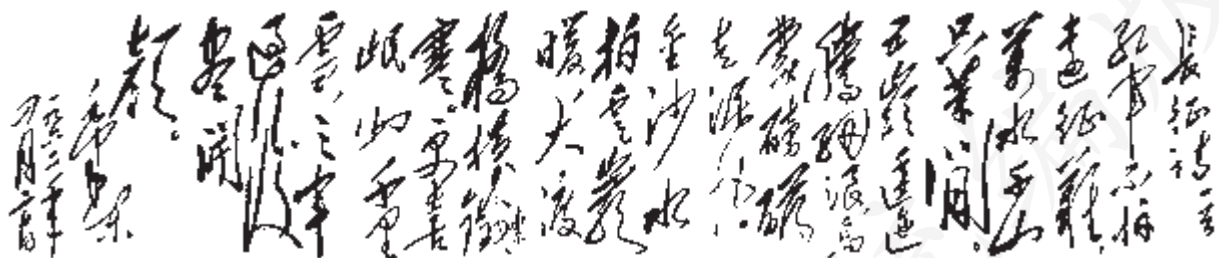 長征詩一首
紅軍不怕
遠征難，
萬水千山
只等閒。
五嶺逶迤
騰細浪，烏
蒙磅礴
走泥丸。
金沙水
拍雲崖
暖，大渡
橋橫鐵索
寒。更喜
岷山千里
雪，三軍
過後
盡開
顏。
毛澤東
一九六二年